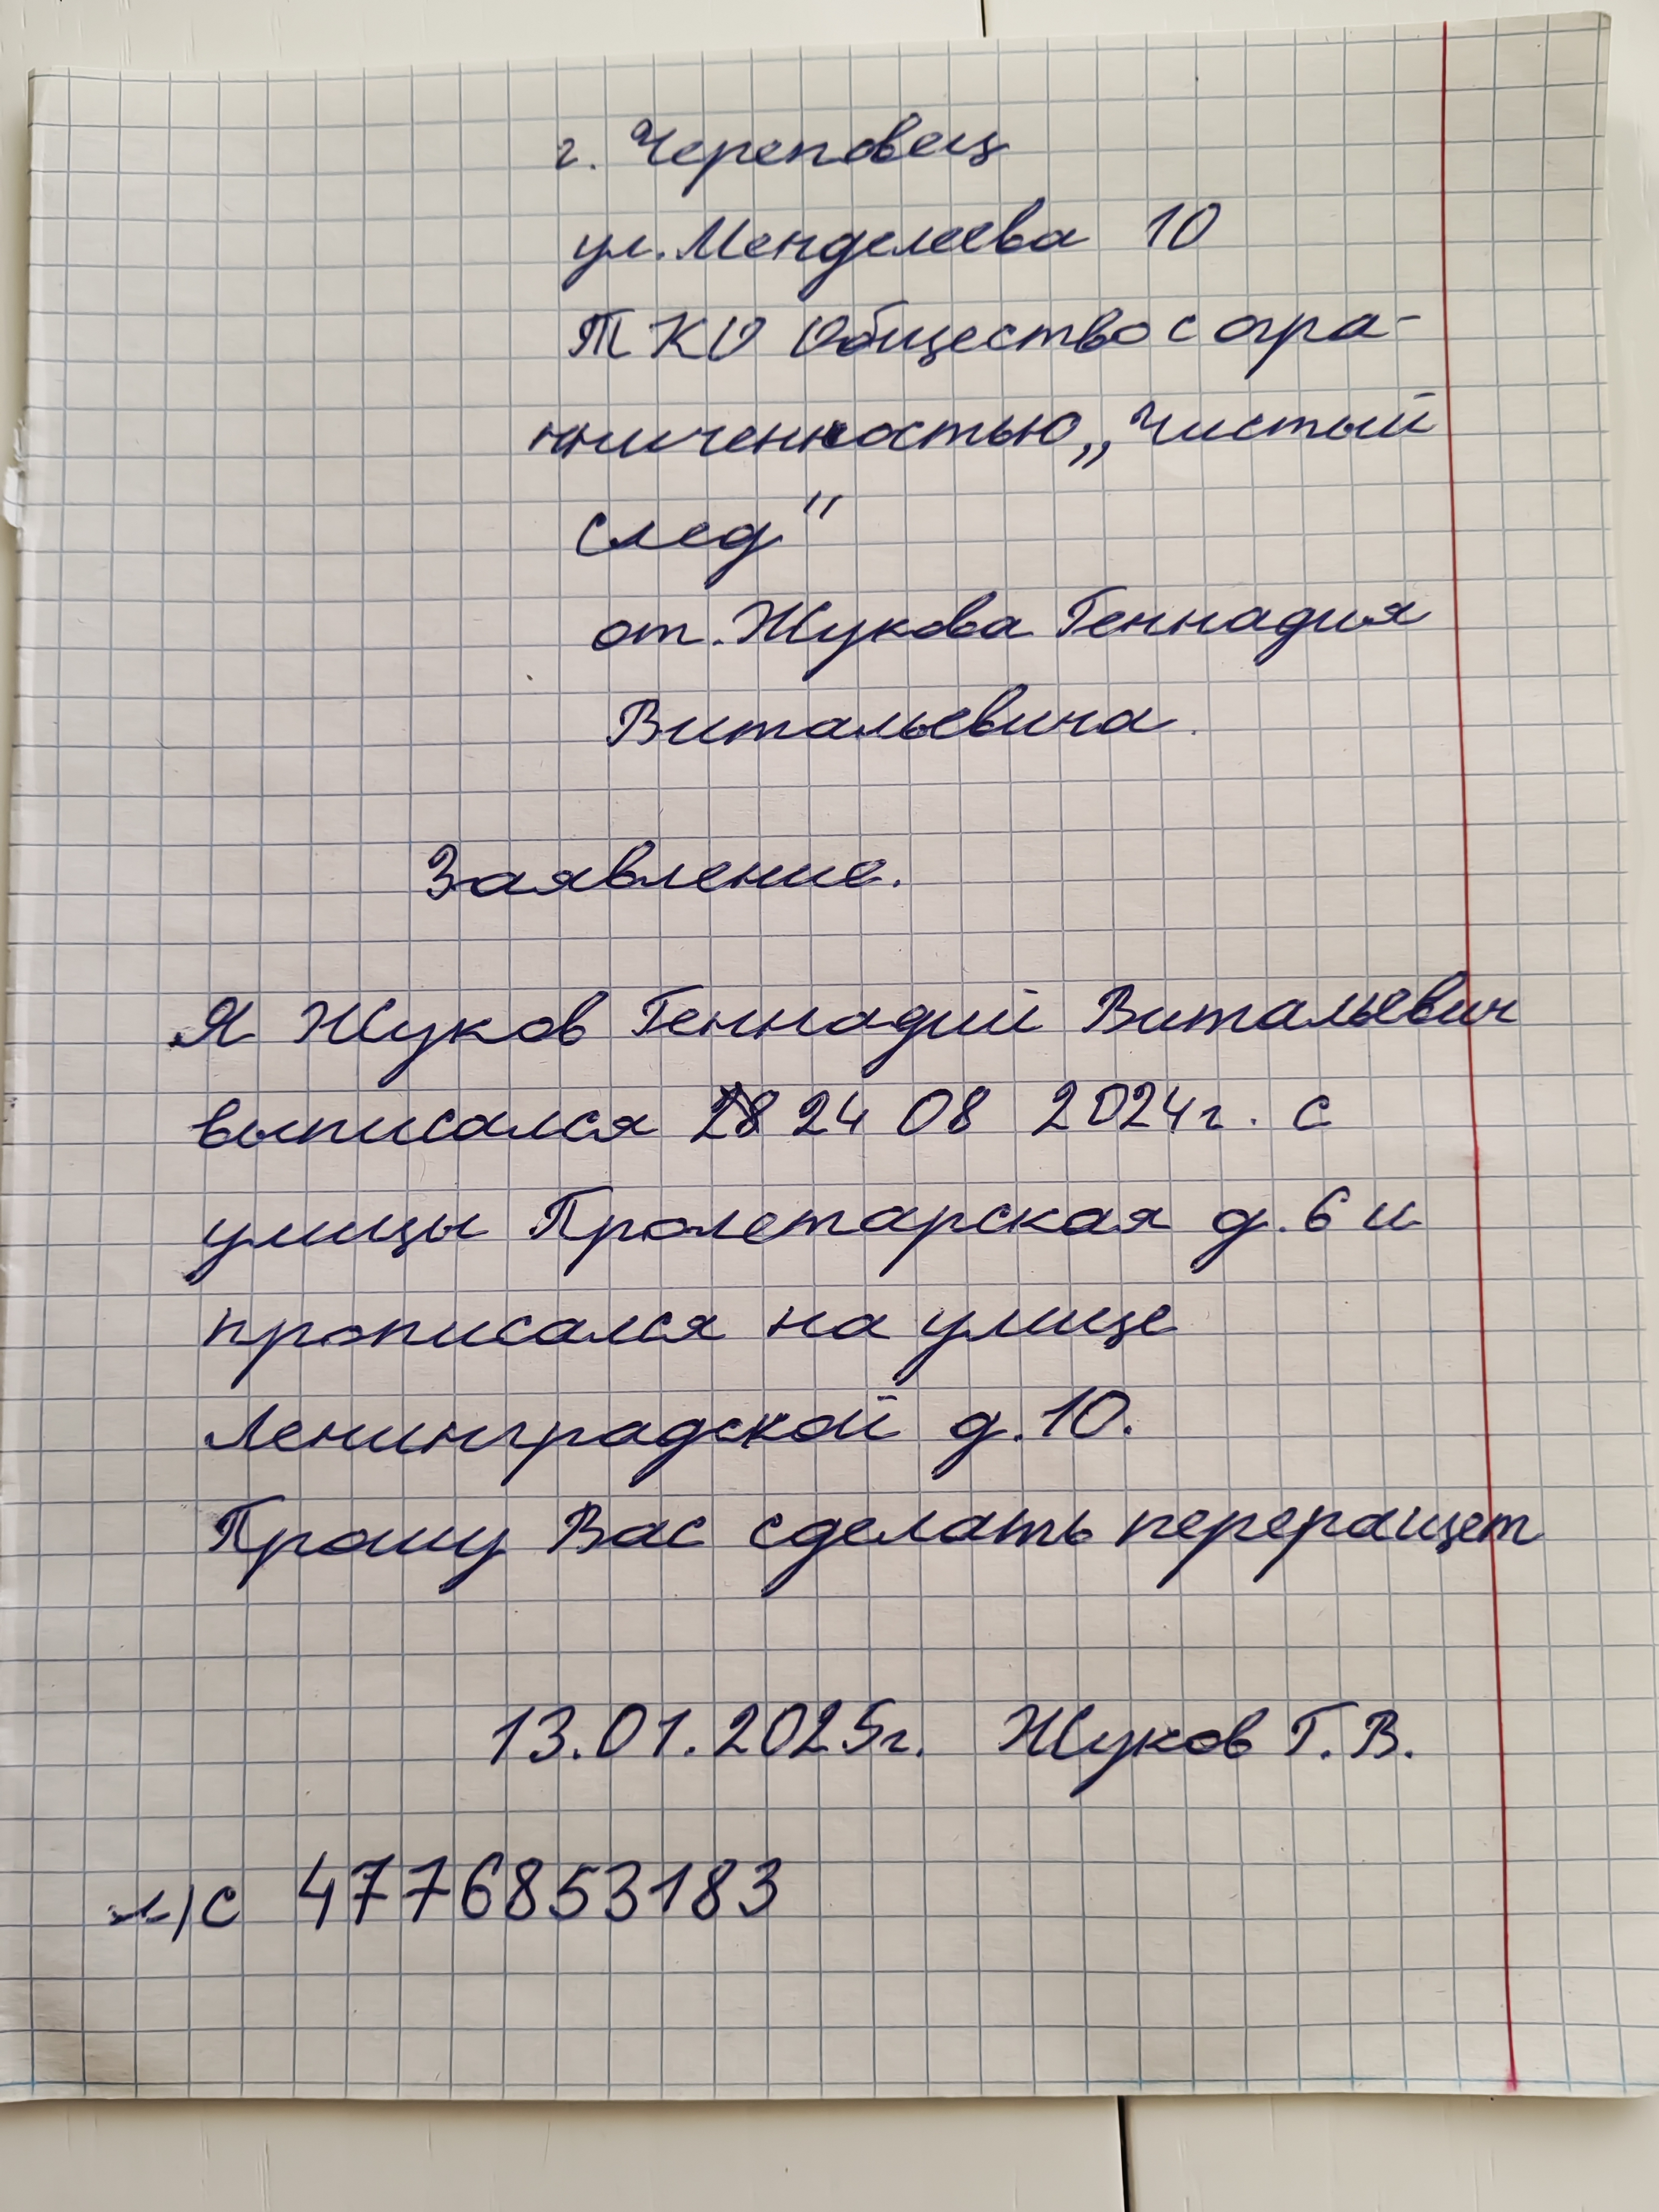 г. Череповец
ул. Менделеева 10
ТКО Общество с огра-
ниченностью „Чистый
след"
от. Жукова Геннадия
Витальевича.
Заявление.
Я Жуков Геннадий Витальевич
выписался 24 08 2024г. с
улицы Пролетарская д. 6 и
прописался на улице
Ленинградской д. 10.
Прошу Вас сделать переращет
13.01.2025г. Жуков Г. В.
л/с 4776853183